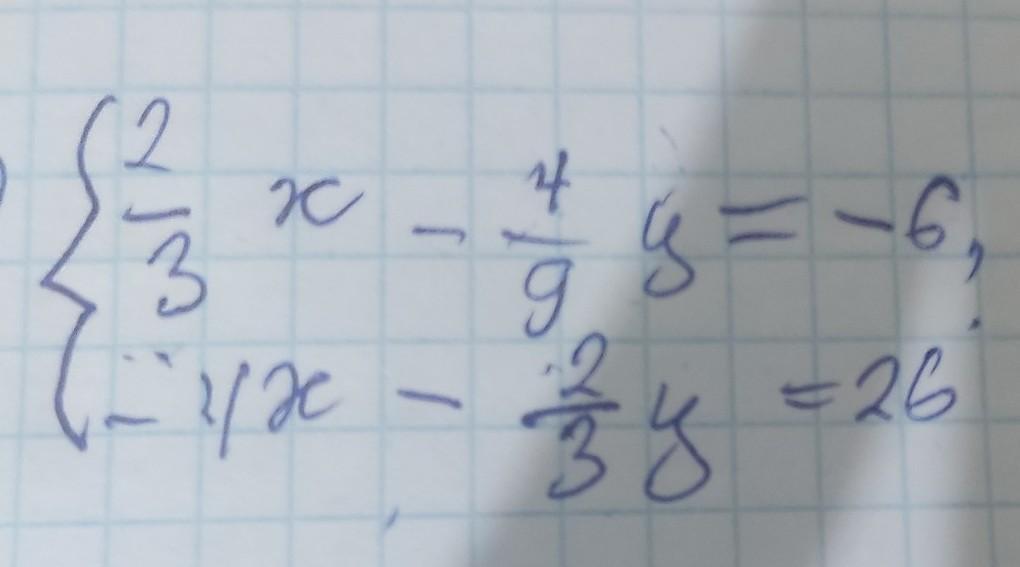 2/3 x - 4/9 y = -6,
-4x - 2/3 y = 26